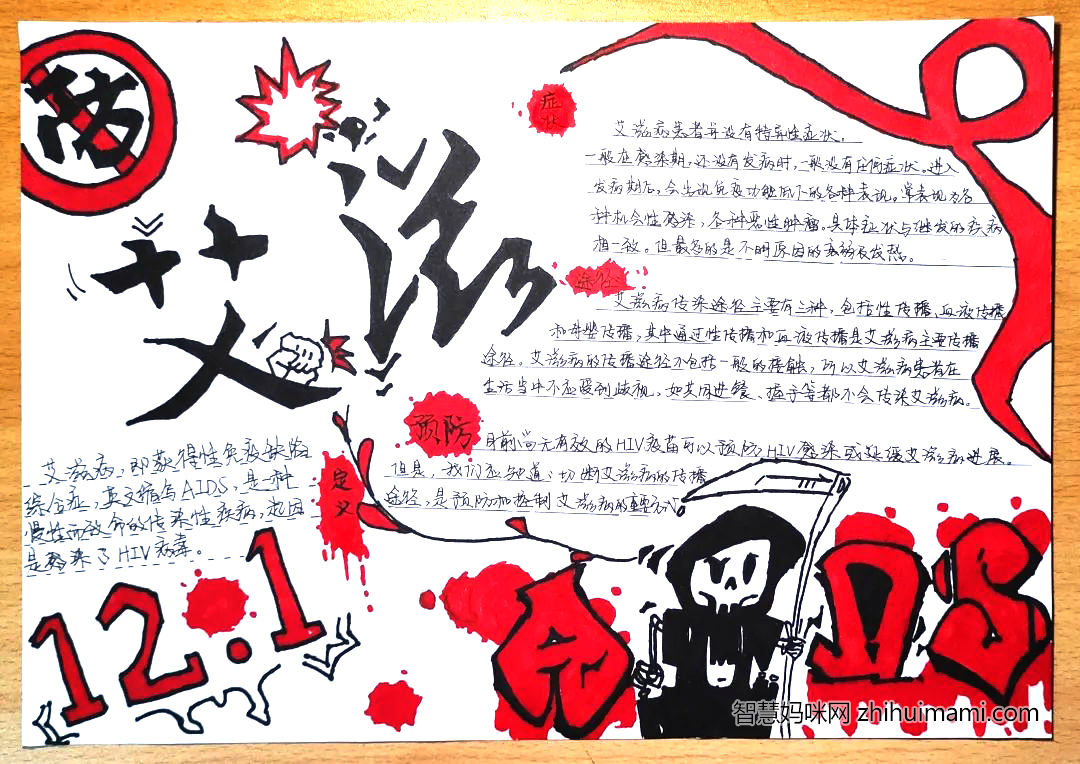 防
艾滋
症状
艾滋病患者并没有特异性症状。
一般在感染期，还没有发病时，一般没有任何症状。进入
发病期后，会出现免疫功能低下的各种表现。常表现为各
种机会性感染，各种恶性肿瘤。具体症状与继发的疾病
相一致。但最多的是不明原因的衰弱及发热。
途径
艾滋病传染途径主要有三种，包括性传播、血液传播
和母婴传播，其中通过性传播和血液传播是艾滋病主要传播
途径。艾滋病的传播途径不包括一般的接触，所以艾滋病患者在
生活当中不应受到歧视。如共同进餐、握手等都不会传染艾滋病。
预防
目前尚无有效的HIV疫苗可以预防HIV感染或延缓艾滋病进展。
但是，我们应知道：切断艾滋病的传播
途径，是预防和控制艾滋病的
定义
艾滋病，即获得性免疫缺陷
综合症，英文缩写AIDS，是一种
慢性而致命的传染性疾病，起因
是感染了HIV病毒。
12.1
AIDS
智慧妈咪网 zhihuimami.com